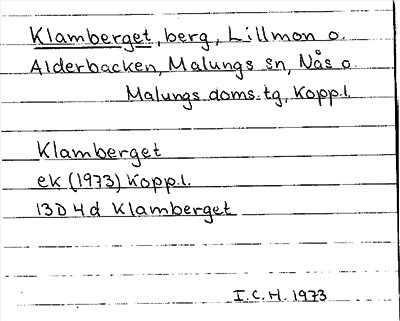 Klamberget, berg, Lillmon o.
Alderbacken, Malungs sn, Nås o.
Malungs doms.tg, Kopp.l.
Klamberget
ek (1973) Kopp.l.
13D 4d Klamberget
I.C.H. 1973